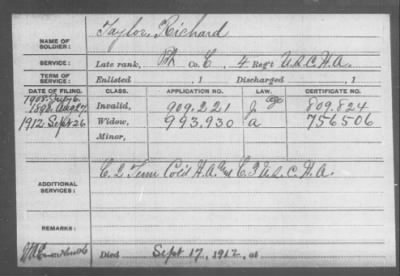 NAME OF SOLDIER: Taylor, Richard
SERVICE: Late rank, Pvt Co. C, 4 Reg't U.S.C.H.A.
TERM OF SERVICE: Enlisted , 1 Discharged , 1
DATE OF FILING. CLASS. APPLICATION NO. LAW. CERTIFICATE NO.
1908 July 6
1890 Aug 27 Invalid, 909.221 J ago 809.824
1912 Sept 26 Widow, 993,930 a 756506
Minor,
ADDITIONAL SERVICES: C. 2 Tenn Col'd H.A. & C. 3 U.S.C.H.A.
REMARKS:
Died Sept 17, 1912, at